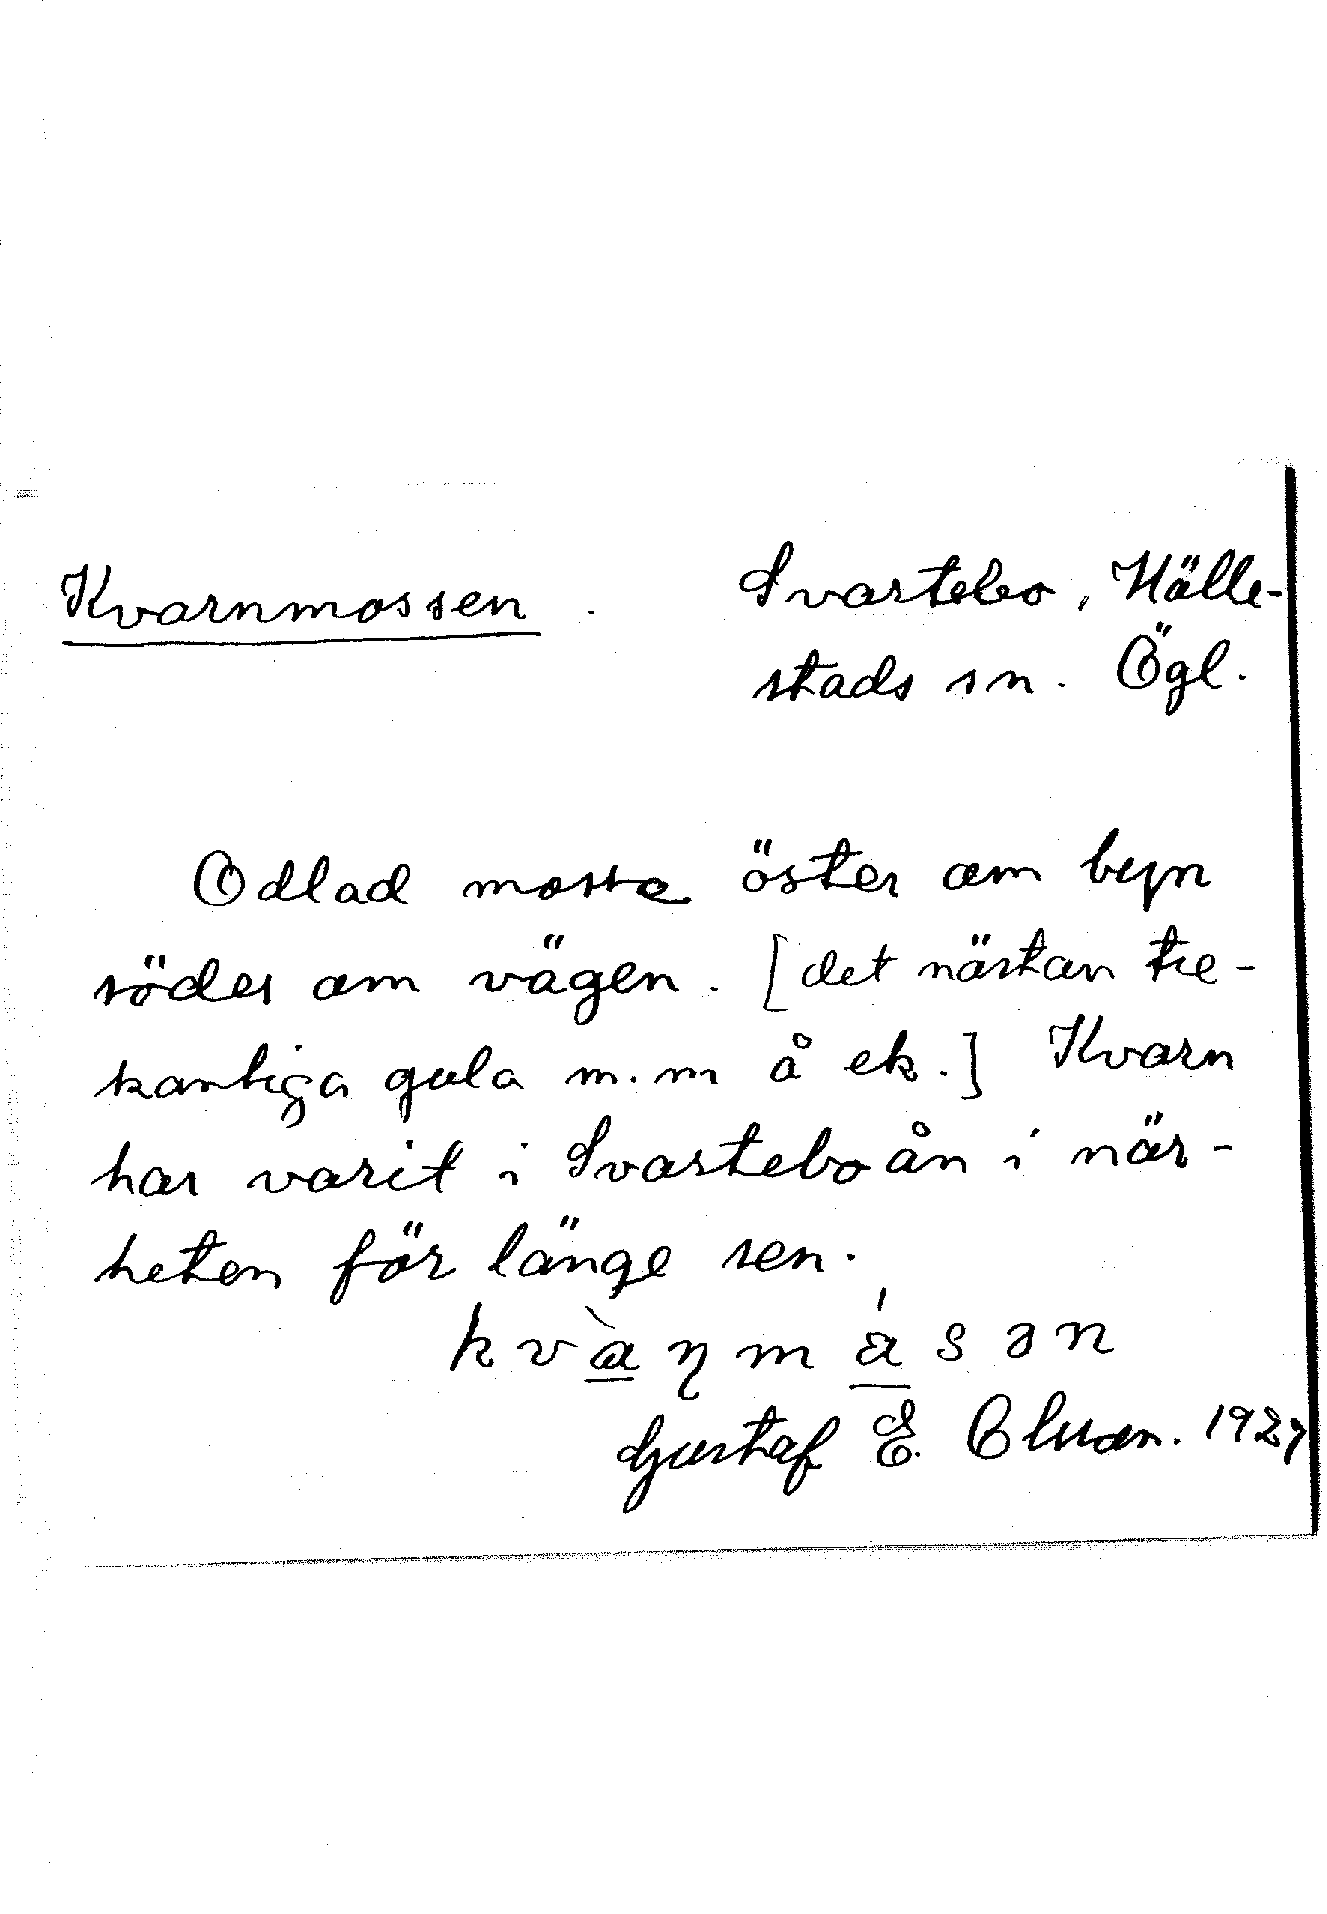 Kvarnmossen. Svartebo, Hälle-
stads sn. Ögl.
Odlad mosse öster om byn
söder om vägen. [det nästan tre-
kantiga gula m.m å ek.] Kvarn
har varit i Svarteboån i när-
heten för länge sen.
kvàɳmásən
Gustaf E. Olsson. 1927